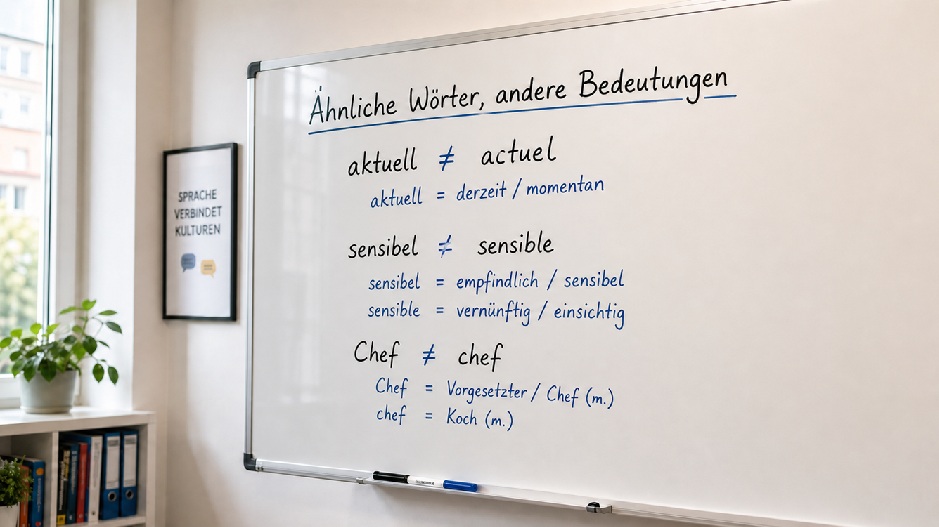 Ähnliche Wörter, andere Bedeutungen
aktuell ≠ actuel
aktuell = derzeit / momentan
sensibel ≠ sensible
sensibel = empfindlich / sensibel
sensible = vernünftig / einsichtig
Chef ≠ chef
Chef = Vorgesetzter / Chef (m.)
chef = Koch (m.)
SPRACHE
VERBINDET
KULTUREN